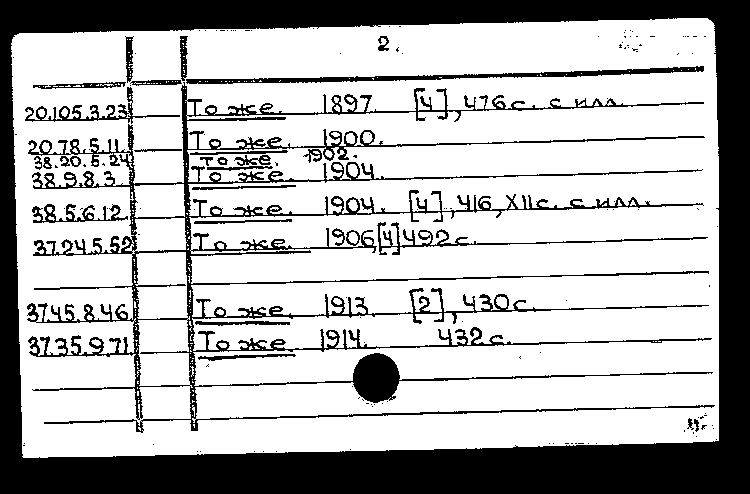 2.
20.105.3.23 То же. 1897 [4], 476 с. с илл.
20.78.5.11. То же. 1900.
38.20.5.24 То же. 1902.
38.9.8.3. То же. 1904.
38.5.6.12. То же. 1904. [4], 416, XII с. с илл.
37.24.5.52 То же. 1906, [4] 492 с.
37.45.8.46 То же. 1913. [2], 430 с.
37.35.9.71 То же. 1914. 432 с.